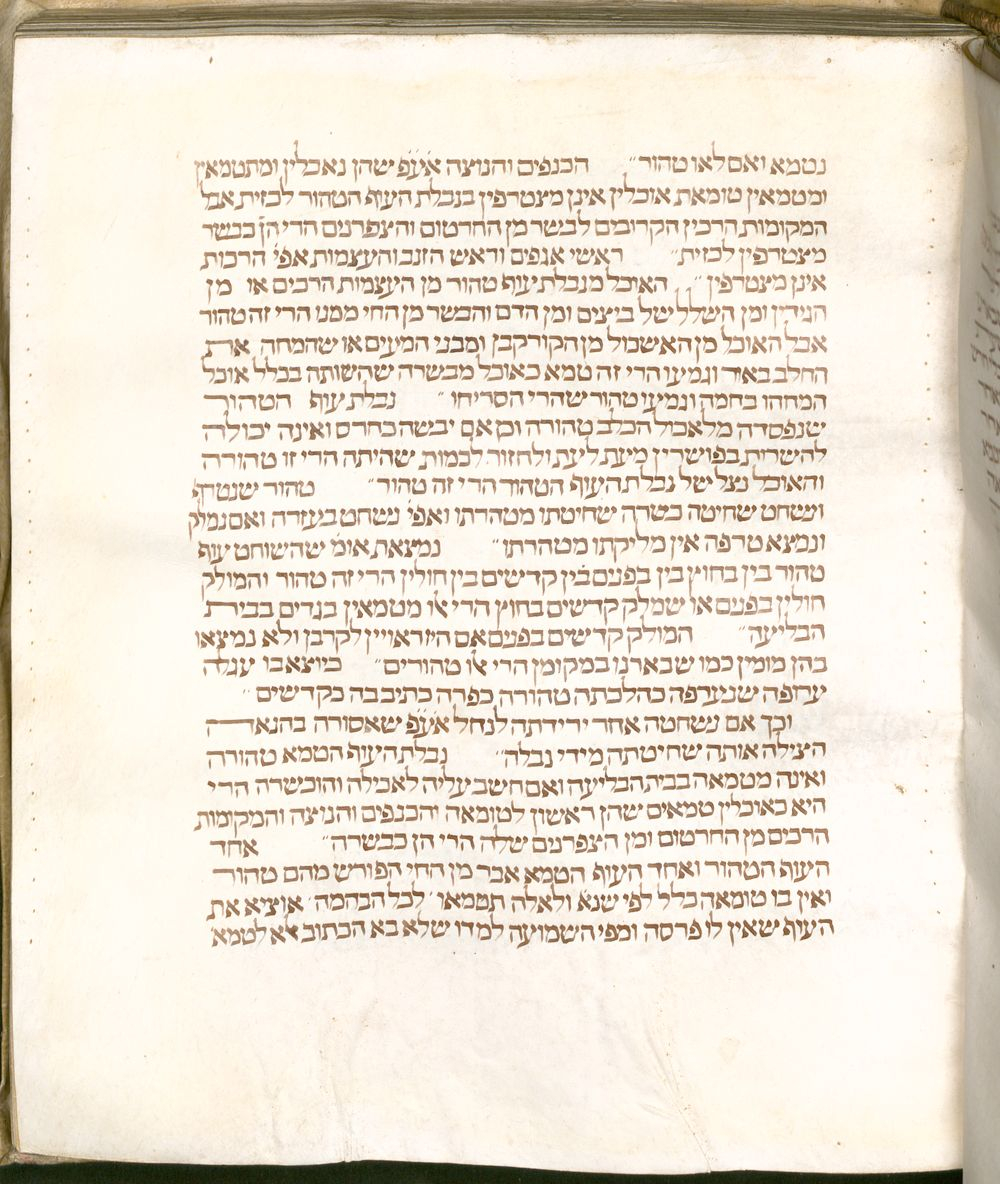 נטמא ואם לאו טהור״ הכנפים והנוצה אע״פ שהן נאכלין ומתטמאין
ומטמאין טומאת אוכלין אינן מצטרפין בנבלת העוף הטהור לכזית אבל
המקומות הרכין הקרובים לבשר מן החרטום והצפרנים הרי הן כבשר
מצטרפין לכזית״ ראשי אגפים וראש הזנב והעצמות אפי׳ הרכות
אינן מצטרפין״ האוכל מנבלת עוף טהור מן העצמות הרכים או מן
הגידין ומן השלל של ביצים ומן הדם והבשר מן החי ממנו הרי זה טהור
אבל האוכל מן האשכול מן הקורקבן ומבני המעים או שהמחה את
החלב באור וגמעו הרי זה טמא כאוכל מבשרה שהשותה בכלל אוכל
המחהו בחמה וגמיעו טהור שהרי הסריחו״ נבלת עוף הטהור
שנפסדה מלאכול הכלב טהורה וכן אם יבשה כחרס ואינה יכולה
להשרות בפושרין מעת לעת ולחזור לכמות שהיתה הרי זו טהורה
והאוכל נצל של נבלת העוף הטהור הרי זה טהור״ טהור שנטרף
ונשחט שחיטה כשרה שחיטתו מטהרתו ואפי׳ נשחט בעזרה ואם נמלק
ונמצא טרפה אין מליקתו מטהרתו״ נמצאת אומ׳ שהשוחט עוף
טהור בין בחוץ בין בפנים בין קדשים בין חולין הרי זה טהור והמולק
חולין בפנים או שמלק קדשים בחוץ הרי אלו מטמאין בגדים בבית
הבליעה״ המולק קדשים בפנים אם היו ראויין לקרבן ולא נמצאו
בהן מומין כמו שבארנו במקומן הרי אלו טהורים״ כיוצא בו עגלה
ערופה שנערפה כהלכתה טהורה כפרה כתיב בה כקדשים״
וכך אם נשחטה אחר ירידתה לנחל אע״פ שאסורה בהנאה
הצילה אותה שחיטתה מידי נבלה״ נבלת העוף הטמא טהורה
ואינה מטמאה בבית הבליעה ואם חישב עליה לאכילה והוכשרה הרי
היא כאוכלין טמאים שהן ראשון לטומאה והכנפים והנוצה והמקומות
הרכים מן החרטום ומן הצפרנים שלה הרי הן כבשרה״ אחד
העוף הטהור ואחד העוף הטמא אבר מן החי הפורש מהם טהור
ואין בו טומאה כלל לפי שנא׳ ולאלה תטמאו׳ לכל הבהמה׳ אוציא את
העוף שאין לו פרסה ומפי השמועה למדו שלא בא הכתוב אלא לטמא